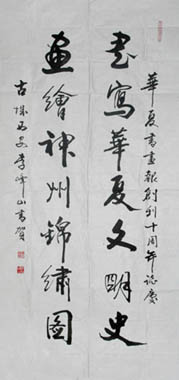 華夏書畫報創刊十周年誌慶
書寫華夏文明史
畫繪神州錦繡圖
古城西安李峰山書賀